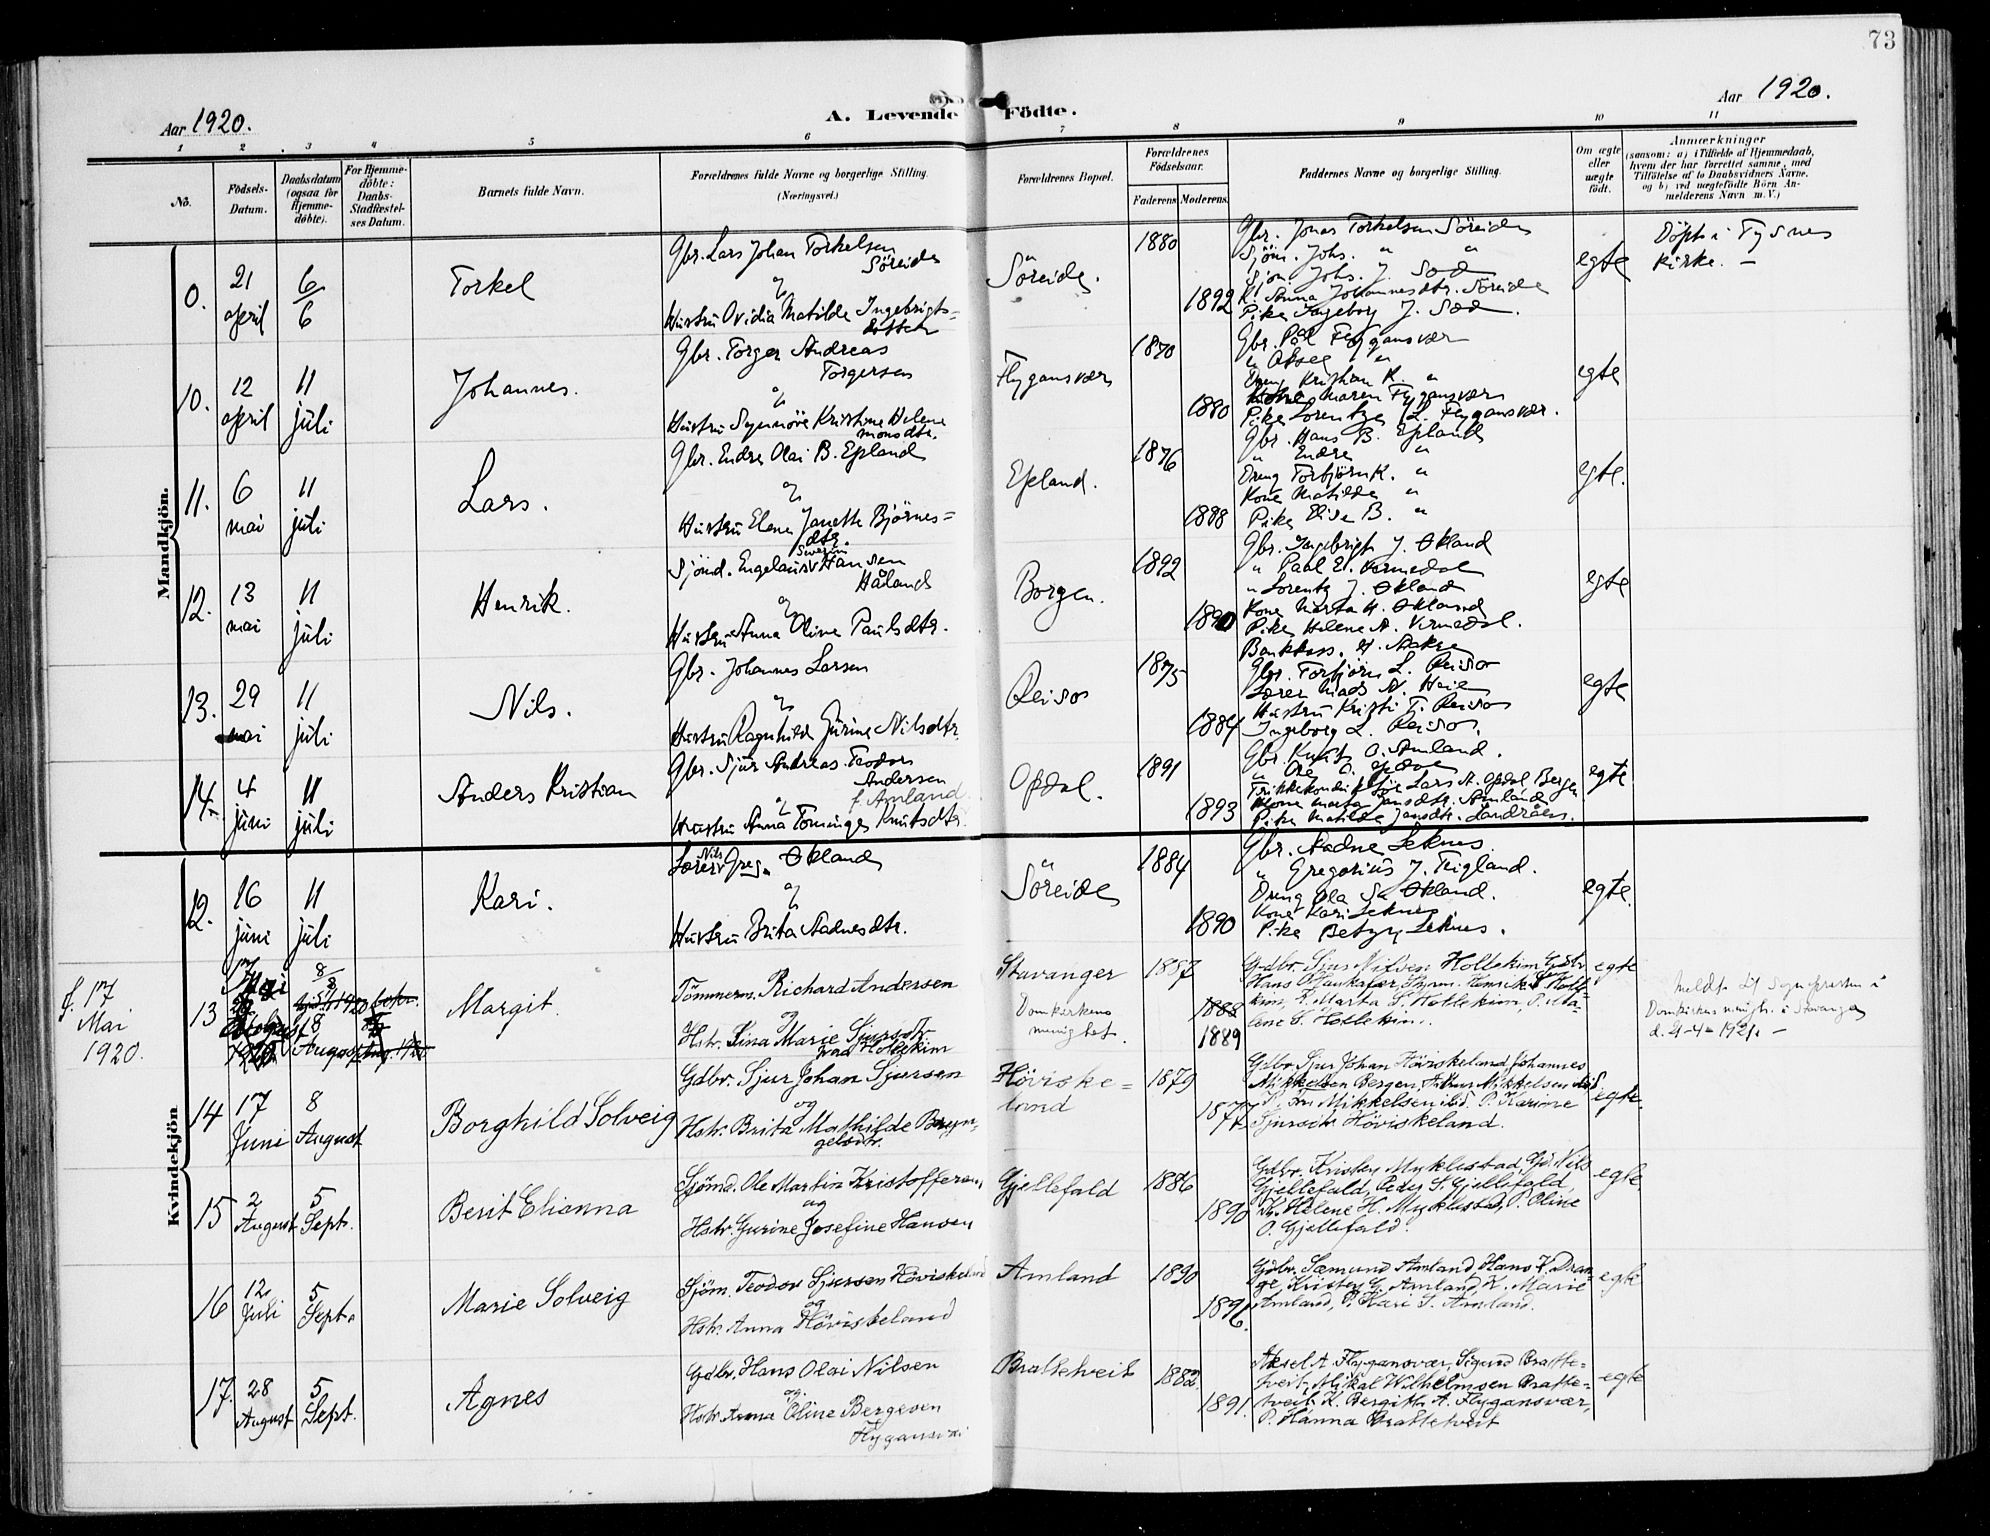 73
Aar 1920.
A. Levende Födte.
Aar 1920.
1 2 3 4 5 6 7 8 9 10 11
No.
Födsels-Datum.
Daabsdatum (ogsaa for Hjemme-döbte).
For Hjemme-döbte: Daabs-Stadfæstel-ses Datum.
Barnets fulde Navn.
Forældrenes fulde Navne og borgerlige Stilling.
(Næringsvei.)
Forældrenes Bopæl.
Forældrenes Födselsaar.
Faderens Moderens
Faddernes Navne og borgerlige Stilling.
Om ægte eller uægte födt.
Anmærkninger
(saasom: a) i Tilfælde af Hjemmedaab, hvem der har forrettet samme, med Tilföielse af to Daabsvidners Navne, og b) ved uægtefödte Börn An-melderens Navn m. V.)
Mandkjön.
21 april
6/6
Torkel
Gbr. Lars Johan Torkelsen
Söreide
og
Hustru Ovidia Matilde Ingebrigts=
datter
Söreide.
1880
1892
Gbr. Jonas Torkelsen Söreide
Sjöm. Johs. " "
K. Anna Johannesdtr. Söreide
Pike Ingeborg J.
egte
Döpt i Tysnes
kirke. —
10.
12 april
11 juli
Johannes.
Gbr. Torger Andreas
Torgersen
og
Hustru Synnöve Kristine Helene
Monsdtr.
Flygansvær
1870
1880
Gbr. Pål Flygansvær
Maren Flygansvær
Pike Lorentze L. Flygansvær.
egte
11.
6 mai
11 juli
Lars.
Gbr. Endre Olai B. Epland
og
Hustru Elene Janette Björnes=
dtr.
Epland.
1876
1888
Gbr. Hans B. Epland
" Endre "
Dreng Torbjörn K. "
Kone Matilde "
Pike Elise B. "
egte.
12.
13 mai
11 juli
Henrik.
Sjömd. Engelaus Severin Hansen
Håland
og
Hustru Anna Oline Paulsdtr.
Borgen.
1892
1890
Gbr. Ingebrigt J. Økland
" Lorentz J. Økland
Kone Marta H. Økland
Pike Helene A. Vermedal.
egte
13.
29 mai
11 juli
Nils.
Gbr. Johannes Larsen
og
Hustru Ragnhilde Jürine Nilsdtr.
Reisos
1875
1884
Gbr. Torbjörn L. Reisos
Lærer Mads N. Heie
Hustru Kristi T. Reisos
Ingeborg L. Reisos.
egte
14.
4 juni
11 juli
Anders Kristian
Gbr. Sjur Andreas Teodor
Andersen
f. Amland
og
Hustru Anna Tomine Knutsdtr.
Opdal.
1891
1893
Gbr. Knut O. Amland.
Lars A. Opdal Bergen
Kone Marta Jansdtr. Amland
Pike Matilde Jansdtr. Landråen.
egte
Kvindekjön
12.
16 juni
11 juli
Kari.
Lærer Nils Greg. Økland
og
Hustru Brita Aadnesdtr.
Söreide
1884
1890
Gbr. Aadne Leknes
" Gregorius J. Teigland.
Dreng Ola Sa Økland.
Kone Kari Leknes
Pike Betzy Leknes.
egte.
f. 17
Mai
1920.
13
8/8
Margit.
Tömmerm. Richard Andersen
og
Hstr. Lina Marie Sjursdtr.
Stavanger
Domkirkens
menighet.
1887
1888
1889
Gdbr. Sjur Nilsen Hollekim
kim, K. Marta S. Hollekim, P. Ma-
lene S. Hollekim.
egte
Meldt til Sognepresten i
Domkirkens menigh. i Stavanger
d. 21-4-1921. —
14
17 Juni
8 August
Borghild Solveig
Gdbr. Sjur Johan Sjursen
og
Hstr. Brita Mathilde Bryn-
gelsdtr.
Höviske=
land
1879
1877
Gdbr. Sjur Johan Höviskeland, Johannes
Mikkelsen Bergen,
P. Karine
Sjursdtr Höviskeland.
egte.
15
2 August
5 Sept.
Berit Elianna
Sjömd. Ole Martin Kristoffersen
og
Hstr. Gurine Josefine Hansen
Gjellefald
1886
1890
Gdbr. Kristen Myklestad, Gd. Nils
Gjellefald, Peder S. Gjellefald,
K. Helene H. Myklestad, P. Oline
O. Gjellefald.
egte
16
12 Juli
5 Sept.
Marie Solveig
Sjöm. Teodor Sjursen Höviskeland
og
Hstr. Anna Höviskeland
Amland
1890
1896.
Gdbr. Sæmund Amland, Hans K. Dran-
ge, Kristen G. Amland, K. Marie
Amland, P. Kari S. Amland.
egte
17.
28 August
5 Sept.
Agnes
Gdbr. Hans Olai Nilsen
og
Hstr. Anna Oline Bergesen
Brattetveit
1882.
1891.
Aksel A. Flygansvær, Sigurd Bratte=
tveit, Mikal Wilhelmsen Bratte=
tveit, K. Bergitte A. Flygansvær,
P. Hanna Brattetveit
egte